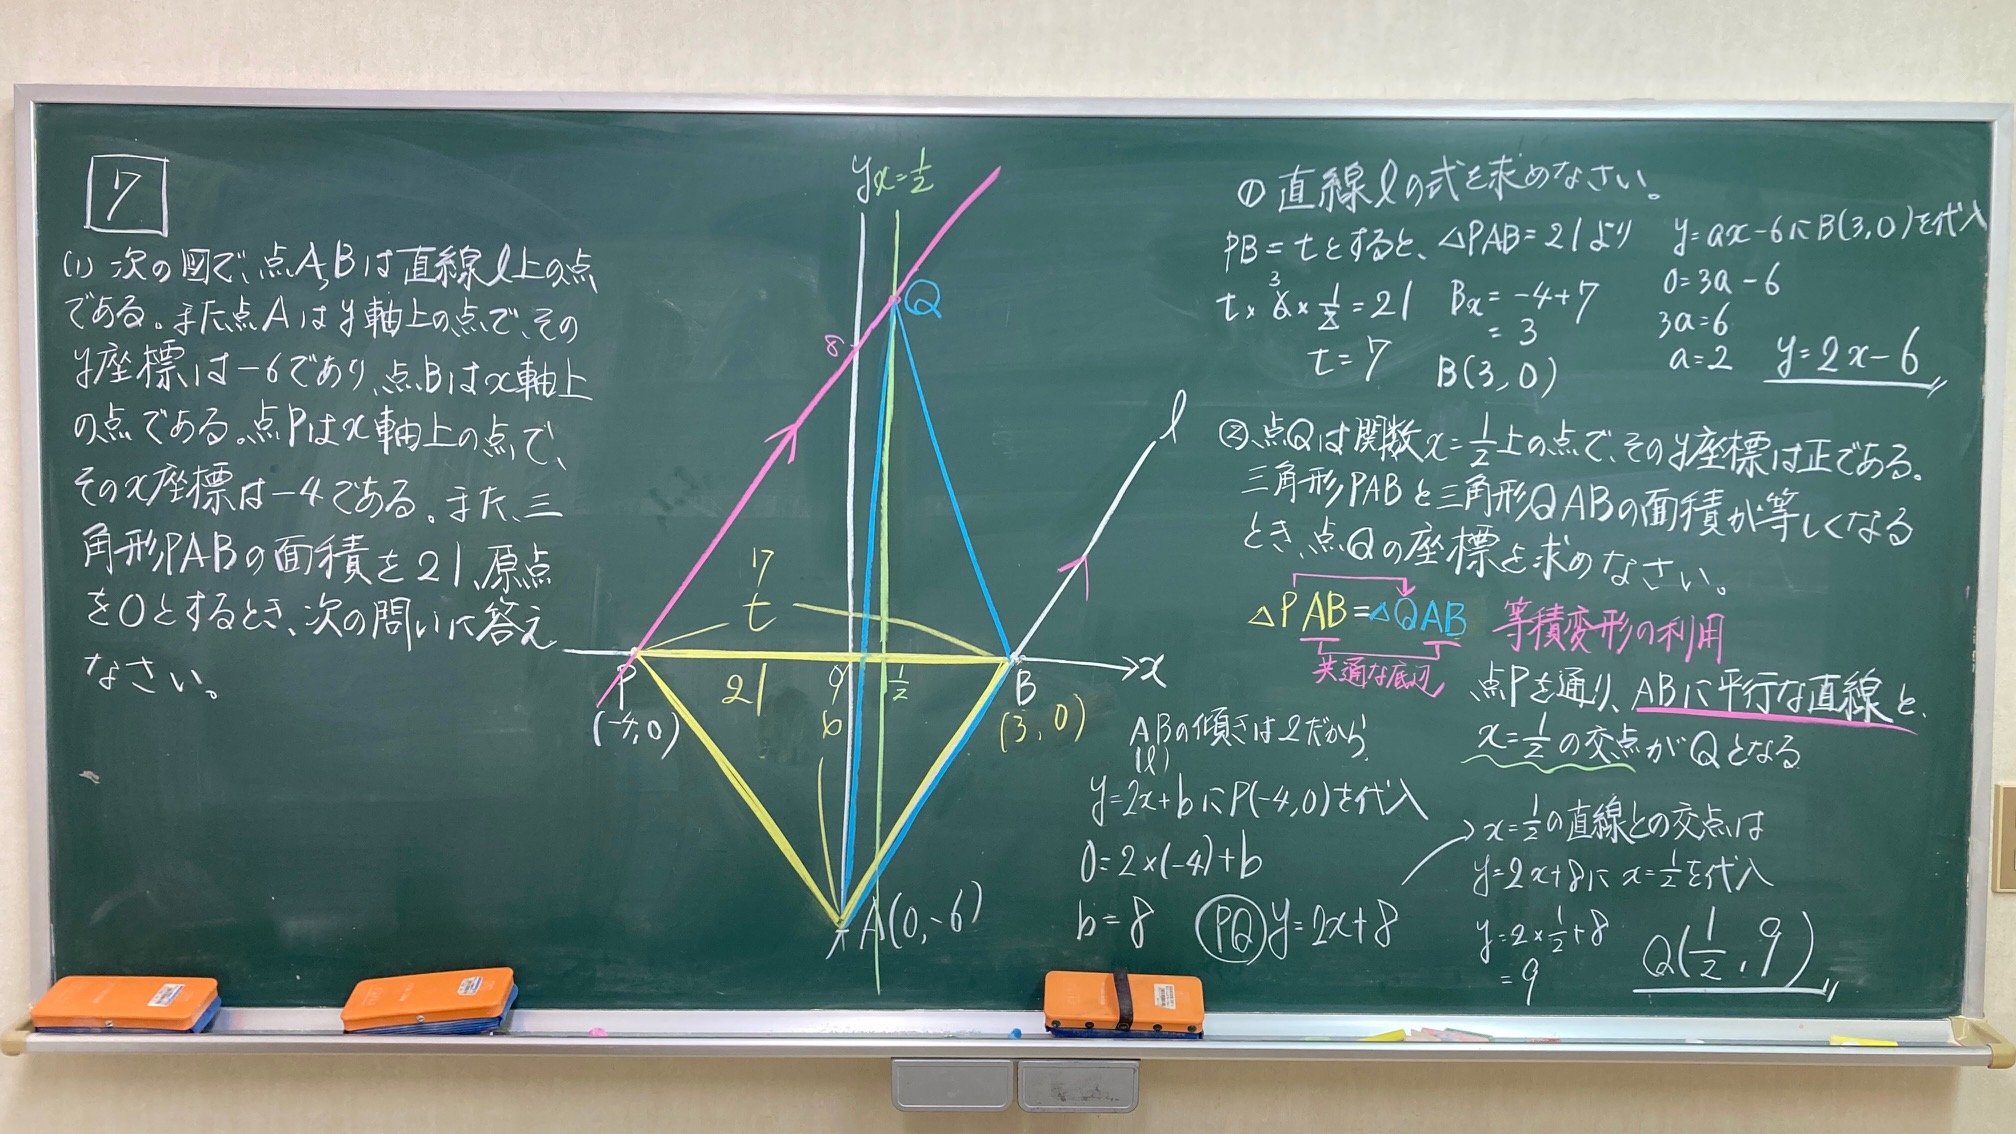 7
(1) 次の図で、点A,Bは直線ℓ上の点
である。また点Aはy軸上の点で、その
y座標は-6であり、点Bはx軸上
の点である。点Pはx軸上の点で、
そのx座標は-4である。また、三
角形PABの面積を21、原点
を0とするとき、次の問いに答え
なさい。
y
x=1/2
Q
8
ℓ
7
t
P
21
0
6
1/2
B
x
(-4,0)
(3,0)
A(0,-6)
① 直線ℓの式を求めなさい。
PB=tとすると、△PAB=21より
t×6×1/2=21
3
t=7
Bx=-4+7
=3
B(3,0)
y=ax-6にB(3,0)を代入
0=3a-6
3a=6
a=2
y=2x-6
②点Qは関数x=1/2上の点で、そのy座標は正である。
三角形PABと三角形QABの面積が等しくなる
とき、点Qの座標を求めなさい。
△PAB=△QAB
共通な底辺
等積変形の利用
点Pを通り、ABに平行な直線と、
x=1/2の交点がQとなる
ABの傾きは2だから
(ℓ)
y=2x+bにP(-4,0)を代入
0=2×(-4)+b
b=8
PQ y=2x+8
x=1/2の直線との交点は
y=2x+8にx=1/2を代入
y=2×1/2+8
=9
Q(1/2,9)